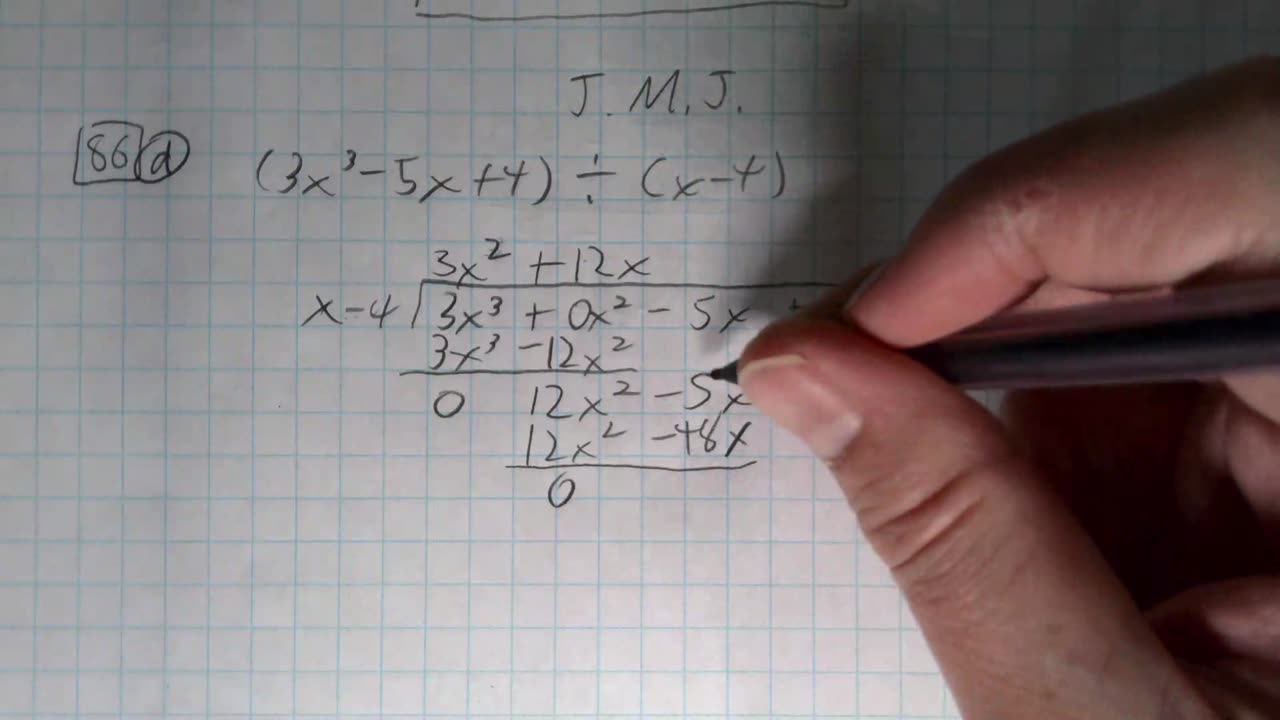 J.M.J.
86 d (3x³-5x+4) ÷ (x-4)
3x² +12x
x-4 3x³ + 0x² - 5x +
3x³ -12x²
0 12x² -5x
12x² -48x
0